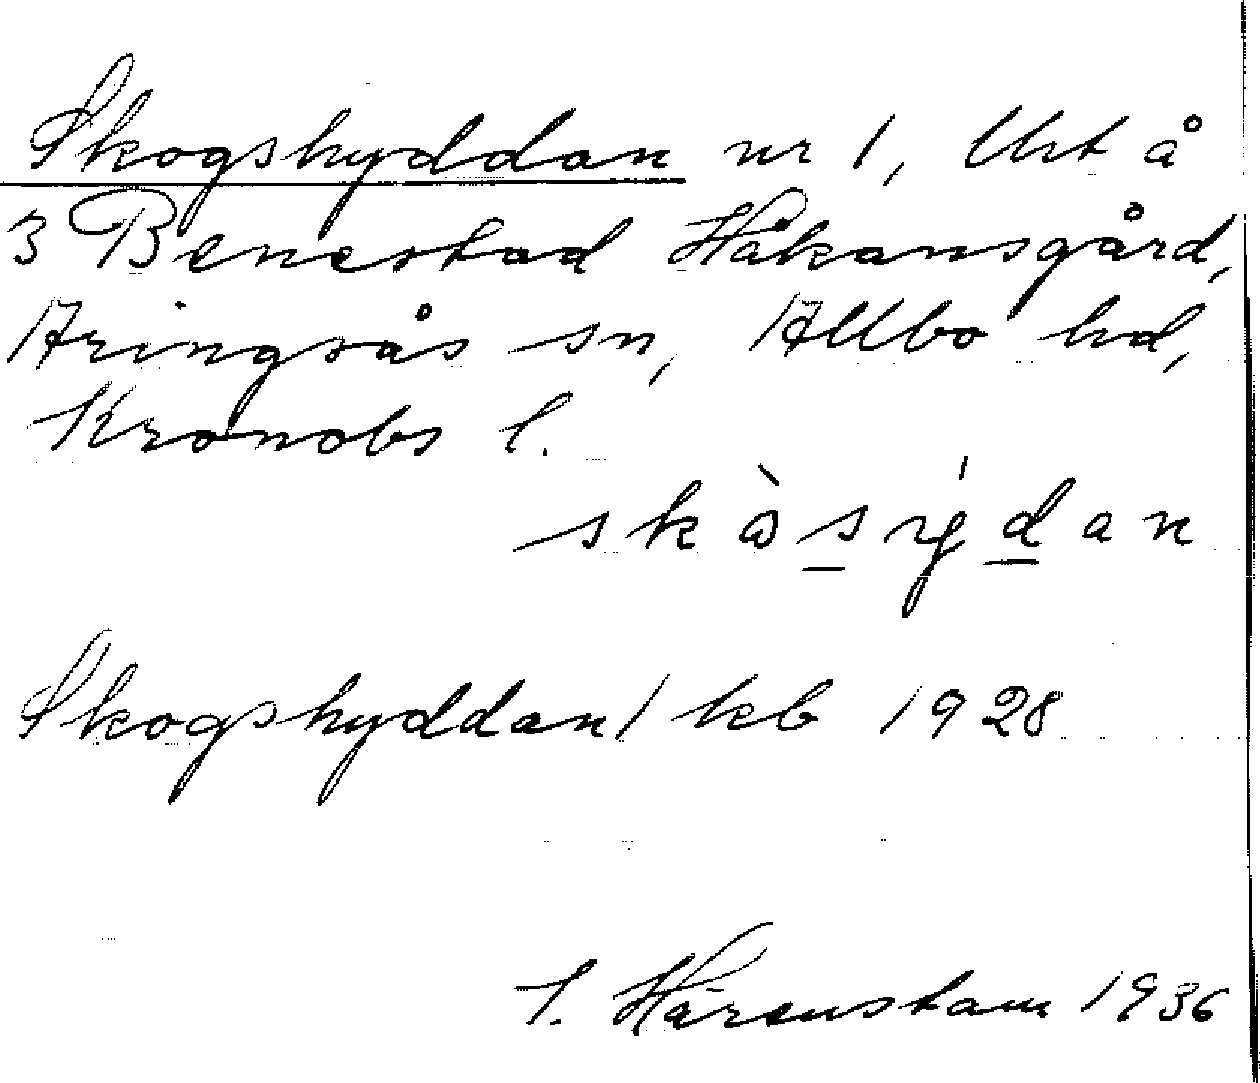 Skogshyddan nr 1, Uht å
3 Benestad Håkansgård,
Aringsås sn, Allbo hd,
Kronobs l.
Skogshyddan 1 kb 1928
I. Härenstam 1936